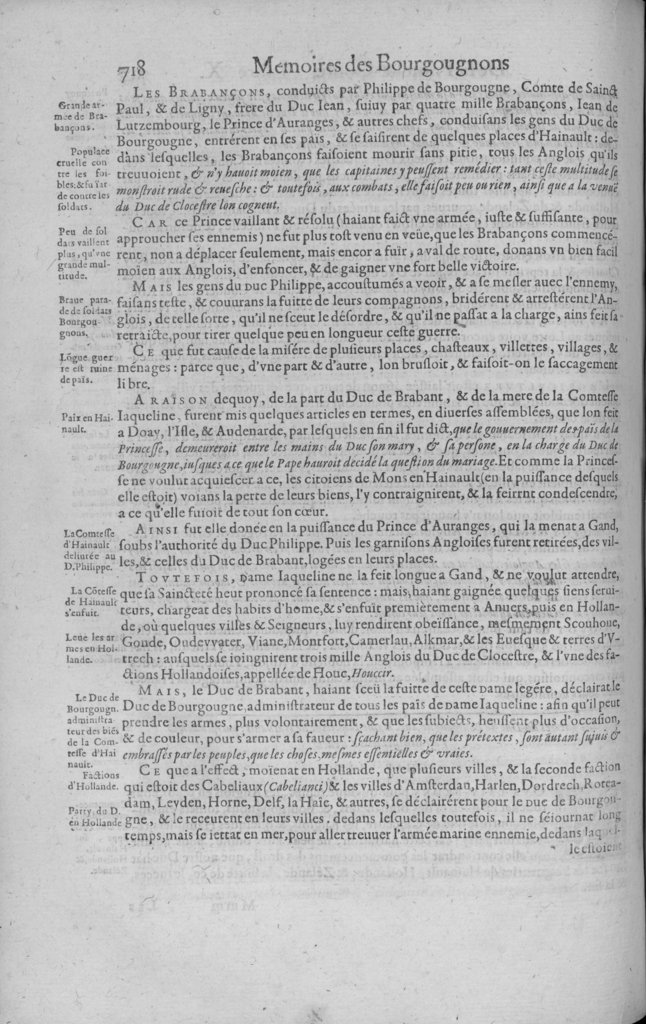 718 Memoires des Bourgougnons
LES BRABANÇONS, conduicts par Philippe de Bourgougne, Comte de Sainct
Paul, & de Ligny, frere du Duc Iean, suiuy par quatre mille Brabançons, Iean de
Lutzembourg, le Prince d'Auranges, & autres chefs, conduisans les gens du Duc de
Bourgougne, entrérent en ses païs, & se saisirent de quelques places d'Hainault: de-
dans lesquelles, les Brabançons faisoient mourir sans pitie, tous les Anglois qu'ils
treuuoient, & n'y hauoit moien, que les capitaines y peussent remédier: tant ceste multitude se
monstroit rude & reuesche: & toutefois, aux combats, elle faisoit peu ou rien, ainsi que a la venuë
du Duc de Clocestre lon cogneut.
Grande ar-
mee de Bra-
bançons.
Populace
cruelle con
tre les foi-
bles: & fuït
de contre les
soldats.
CAR ce Prince vaillant & résolu (haiant faict vne armée, iuste & suffisante, pour
approucher ses ennemis) ne fut plus tost venu en veüe, que les Brabançons commencé-
rent, non a déplacer seulement, mais encor a fuïr, a val de route, donans vn bien facil
moïen aux Anglois, d'enfoncer, & de gaigner vne fort belle victoire.
Peu de sol
dats vaillent
plus, qu'vne
grande mul-
titude.
MAIS les gens du Duc Philippe, accoustumés a veoir, & a se mesler auec l'ennemy,
faisans teste, & couurans la fuitte de leurs compagnons, bridérent & arrestérent l'An-
glois, de telle sorte, qu'il ne sceut le désordre, & qu'il ne passat a la charge, ains feit sa
retraicte, pour tirer quelque peu en longueur ceste guerre.
Braue para-
de de soldats
Bourgou-
gnons.
CE que fut cause de la misére de plusieurs places, chasteaux, villettes, villages, &
ménages: parce que, d'vne part & d'autre, lon brusloit, & faisoit-on le saccagement
libre.
Lōgue guer
re est ruine
de païs.
A RAISON dequoy, de la part du Duc de Brabant, & de la mere de la Comtesse
Iaqueline, furent mis quelques articles en termes, en diuerses assemblées, que lon feit
a Doay, l'Isle, & Audenarde, par lesquels en fin il fut dict, que le gouuernement des païs de la
Princesse, demeureroit entre les mains du Duc son mary, & sa persone, en la charge du Duc de
Bourgougne, iusques a ce que le Pape hauroit decidé la question du mariage. Et comme la Princes-
se ne voulut acquiescer a ce, les citoiens de Mons en Hainault (en la puissance desquels
elle estoit) voians la perte de leurs biens, l'y contraignirent, & la feirrnt condescendre,
a ce qu'elle fuioit de tout son cœur.
Paix en Hai
nault.
AINSI fut elle donée en la puissance du Prince d'Auranges, qui la menat a Gand,
soubs l'authorité du Duc Philippe. Puis les garnisons Angloises furent retirées, des vil-
les, & celles du Duc de Brabant, logées en leurs places.
La Comtesse
d'Hainault
deliurée au
D. Philippe.
TOVTEFOIS, Dame Iaqueline ne la feit longue a Gand, & ne voulut attendre,
que sa Saincteté heut prononcé sa sentence: mais, haiant gaignée quelques siens serui-
teurs, chargeat des habits d'home, & s'enfuit premièrement a Anuers, puis en Hollan-
de, où quelques villes & Seigneurs, luy rendirent obeïssance, mesmement Scouhoue,
Goude, Oudevvater, Viane, Montfort, Camerlau, Alkmar, & les Euesque & terres d'V-
trech: ausquels se ioingnirent trois mille Anglois du Duc de Clocestre, & l'vne des fa-
ctions Hollandoises, appellée de Houe, Houccir.
La Cōtesse
de Hainault
s'enfuit.
Leue les ar
mes en Hol-
lande.
MAIS, le Duc de Brabant, haiant sceü la fuitte de ceste Dame legére, déclairat le
Duc de Bourgougne, administrateur de tous les païs de Dame Iaqueline: afin qu'il peut
prendre les armes, plus volontairement, & que les subiects, heussent plus d'occasion,
& de couleur, pour s'armer a sa faueur: sçachant bien, que les prétextes, sont autant suiuis &
embrassés par les peuples, que les choses mesmes essentielles & vraies.
Le Duc de
Bourgougn.
administra-
teur des biēs
de la Com-
tesse d'Hai
nault.
CE que a l'effect, moïenat en Hollande, que plusieurs villes, & la seconde faction
qui estoit des Cabeliaux (Cabelianci) & les villes d'Amsterdan, Harlen, Dordrech, Rotte-
dam, Leyden, Horne, Delf, la Haïe, & autres, se déclairérent pour le Duc de Bourgou-
gne, & le receurent en leurs villes. dedans lesquelles toutefois, il ne séiournat long
temps, mais se iettat en mer, pour aller treuuer l'armée marine ennemie, dedans laquel-
le estoient
Factions
d'Hollande.
Party du D.
en Hollande